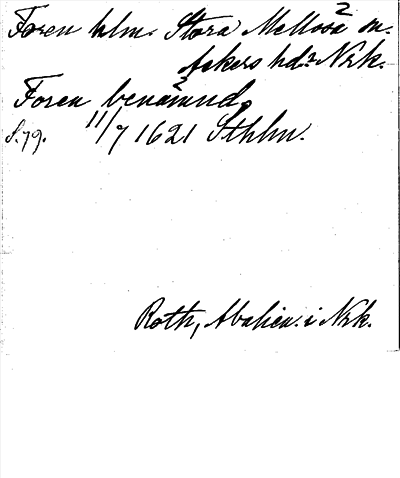 Foren hlm. Stora Mellösa sn.
Askers hd. Nrk.
Foren benämnd
S. 79. 11/7 1621 Sthlm.
Roth, Abalien. i Nrk.